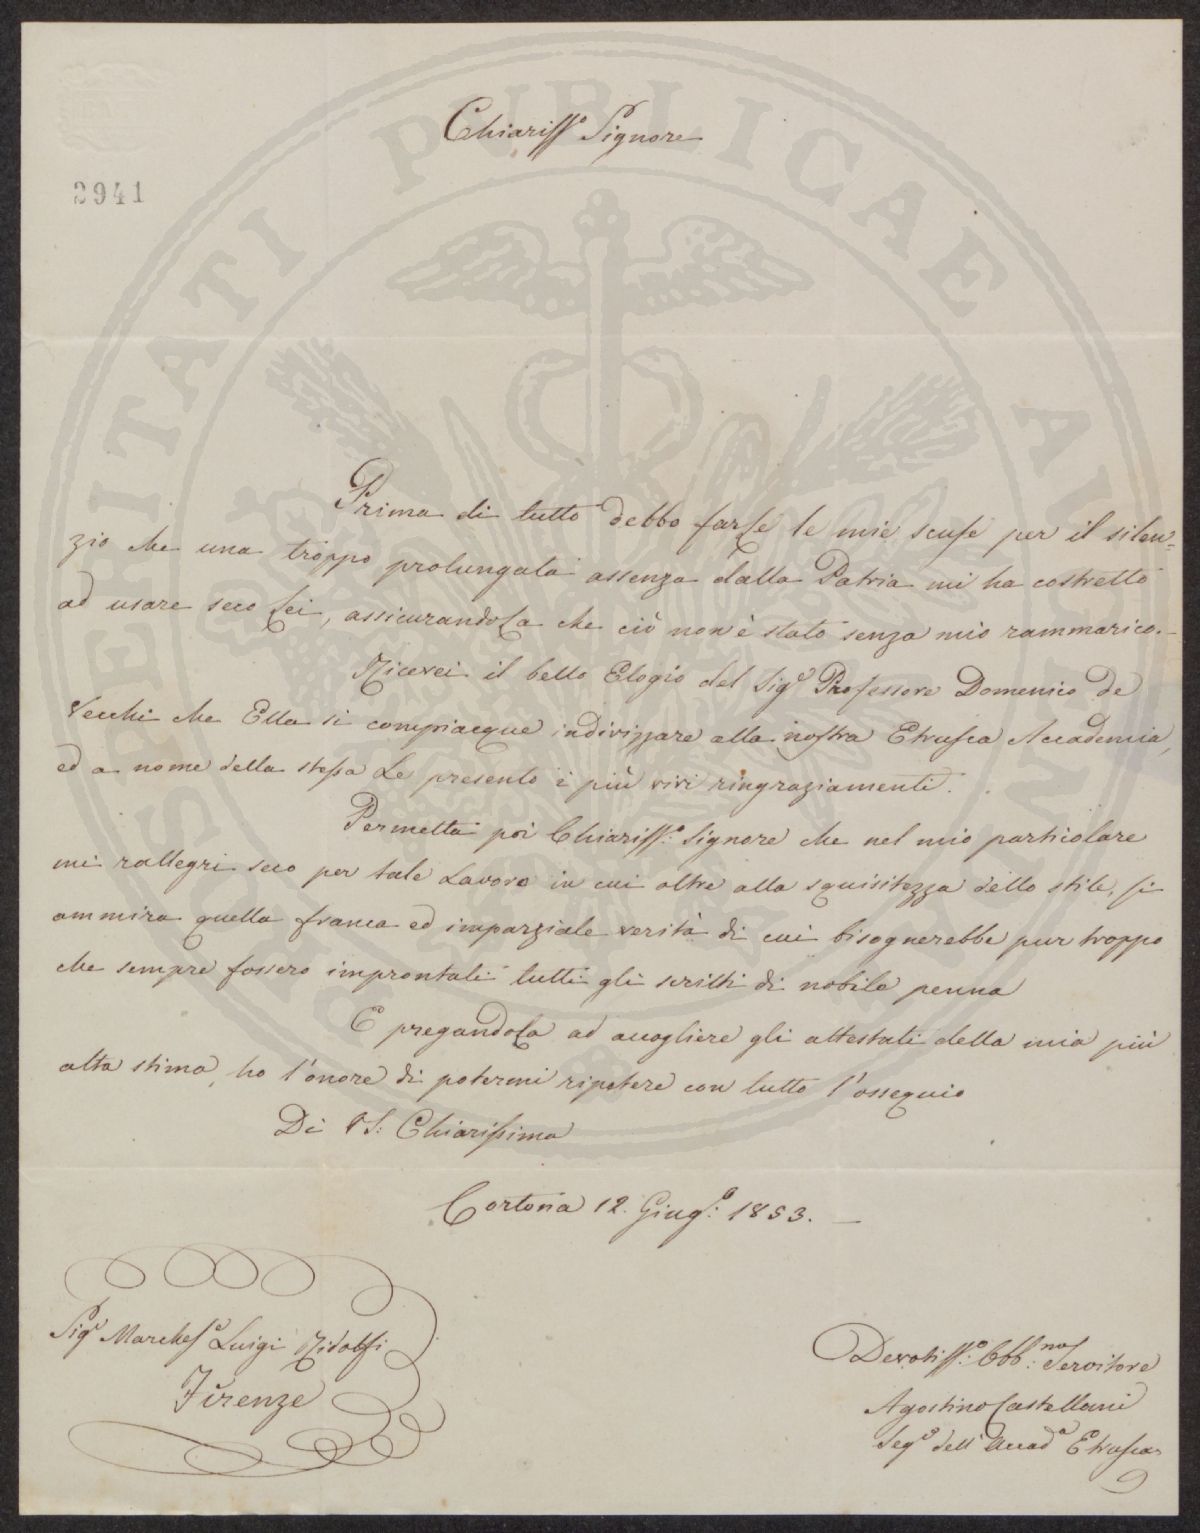 Chiariss.º Signore
2941
Prima di tutto debbo farLe le mie scuse per il silen=
zio che una troppo prolungata assenza dalla Patria mi ha costretto
ad usare seco Lei, assicurandoLa che ciò non è stato senza mio rammarico.
Ricevei il bello Elogio del Sig.e Professore Domenico de
Vecchi che Ella si compiacque indirizzare alla nostra Etrusca Accademia,
ed a nome della stessa Le presento i più vivi ringraziamenti.
Permetta poi Chiariss:º Signore che nel mio particolare
mi rallegri seco per tale Lavoro in cui oltre alla squisitezza dello stile, si
ammira quella franca ed imparziale verità di cui bisognerebbe pur troppo
che sempre fossero improntati tutti gli scritti di nobile penna
E pregandoLa ad accogliere gli attestati della mia più
alta stima, ho l'onore di potermi ripetere con tutto l'ossequio
Di VS: Chiarissima
Cortona 12. Giug:º 1853. —
Sig.e Marches.e Luigi Ridolfi
Firenze
Devotiss:º Obb:mo Servitore
Agostino Castellani
Seg.º dell'Accad.a Etrusca
PROSPERITATI PUBLICAE AUGENDAE